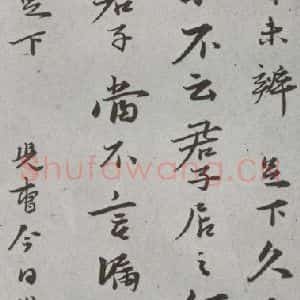 未辨 足下久
不云君子居之何
君子當不言
足下 曹今日
Shufawang.cn